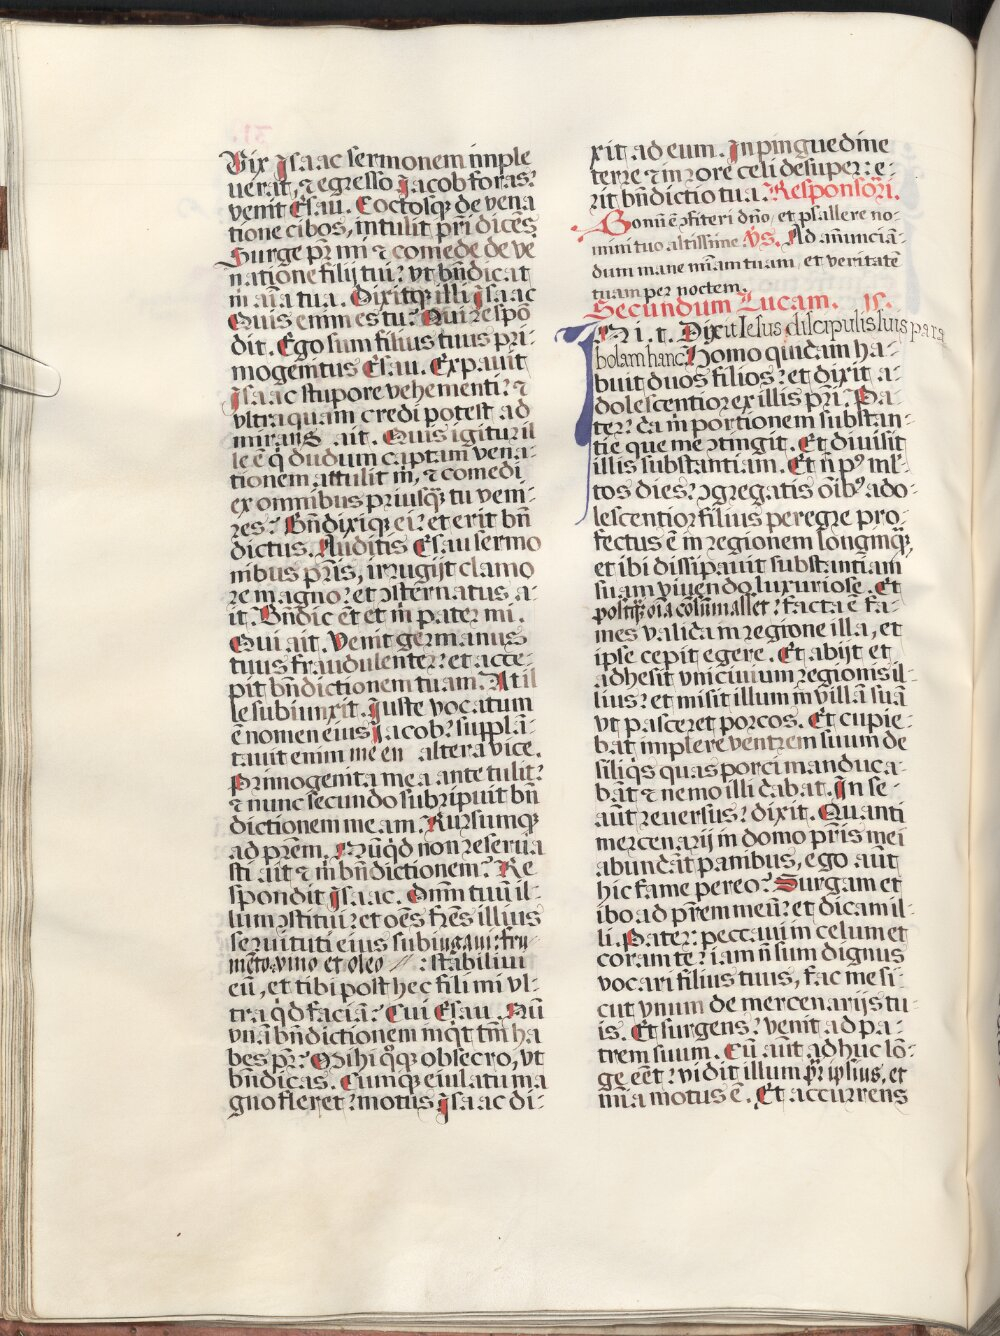 Vix Isaac sermonem imple
uerat, ⁊ egresso Iacob foras?
venit Esau. Coctosqꝫ de vena
tione cibos, intulit p̄ri dicēs
Surge pr̄ mi ⁊ comede de ve
natione filij tui? vt bn̄dicat
m̄ aīa tua. Dixitqꝫ illi Isaac
Quis enim es tu? Qui respō
dit. Ego sum filius tuus pri-
mogenitus Esau. Expauit
Isaac stupore vehementi? ⁊
vltra quam credi potest ad
mirans ait. Quis igitur il
le ē q̇ dudum captam vena-
tionem attulit m̄, ⁊ comedi
ex omnibus priusqꝫ tu veni-
res? Bn̄dixiqꝫ ei? et erit bn̄
dictus. Auditis Esau sermo
nibus p̄ris, irrugijt clamo
re magno? et ɔsternatus a-
it. Bn̄dic ēt et m̄ pater mi.
Qui ait. Venit germanus
tuus fraudulenter? et acce-
pit bn̄dictionem tuam. At il
le subiunxit. Iuste vocatum
ē nomen eius Iacob? supplā-
tauit enim me en altera vice.
Primogenita mea ante tulit?
⁊ nunc secundo subripuit bn̄
dictionem meam. Rursumqꝫ
ad p̄rem. Nūq̇d non reserua
sti ait ⁊ m̄ bn̄dictionem? Re
spondit Isaac. Dn̄m tuū il-
lum ɔstitui? et oēs fr̄es illius
seruituti eius subiugaui: fru-
mēto, vino et oleo : stabiliui
eū, et tibi post hec fili mi vl-
tra q̇d faciā? Cui Esau. Nū
vnā bn̄dictionem inq̇t tm̄ ha
bes pr̄? Mihi q̊qꝫ obsecro, vt
bn̄dicas. Cumqꝫ eiulatu ma
gno fleret? motus Isaac di-
xit ad eum. In pinguedine
terre ⁊ in rore celi desuper? e-
rit bn̄dictio tua. Responsori.
Bonū ē ɔfiteri dn̄o, et psallere no-
mini tuo altissime. Vs. Ad an̄unciā-
dum mane miām tuam, et veritatē
tuam per noctem.
Secundum Lucam. 15.
IN i. t. Dixit Iesus discipulis suis para
bolam hanc. Homo quidam ha-
buit duos filios? et dixit a-
dolescentior ex illis p̄ri. Pa-
ter? da m̄ portionem substan-
tie que me ɔtingit. Et diuisit
illis substantiam. Et n̄ pꝰ ml̄-
tos dies? ɔgregatis oībꝰ ado-
lescentior filius peregre pro-
fectus ē in regionem longinqꝫ,
et ibi dissipauit substantiam
suam viuendo luxuriose. Et
postqꝫ oīa cōsūmasset? facta ē fa-
mes valida in regione illa, et
ipse cepit egere. Et abijt et
adhesit vni ciuium regionis il-
lius? et misit illum in villā suā
vt pasceret porcos. Et cupie-
bat implere ventrem suum de
siliq̇s quas porci manduca-
bāt ⁊ nemo illi dabat. In se-
aūt reuersus? dixit. Quanti
mercenarij in domo p̄ris mei
abundāt panibus, ego aūt
hic fame pereo? Surgam et
ibo ad p̄rem meū? et dicam il-
li. Pater? peccaui in celum et
coram te? iam n̄ sum dignus
vocari filius tuus, fac me si-
cut vnum de mercenarijs tu-
is. Et surgens? venit ad pa-
trem suum. Cū aūt adhuc lō-
ge eēt? vidit illum pr̄ ipsius, et
mīa motus ē. Et accurrens